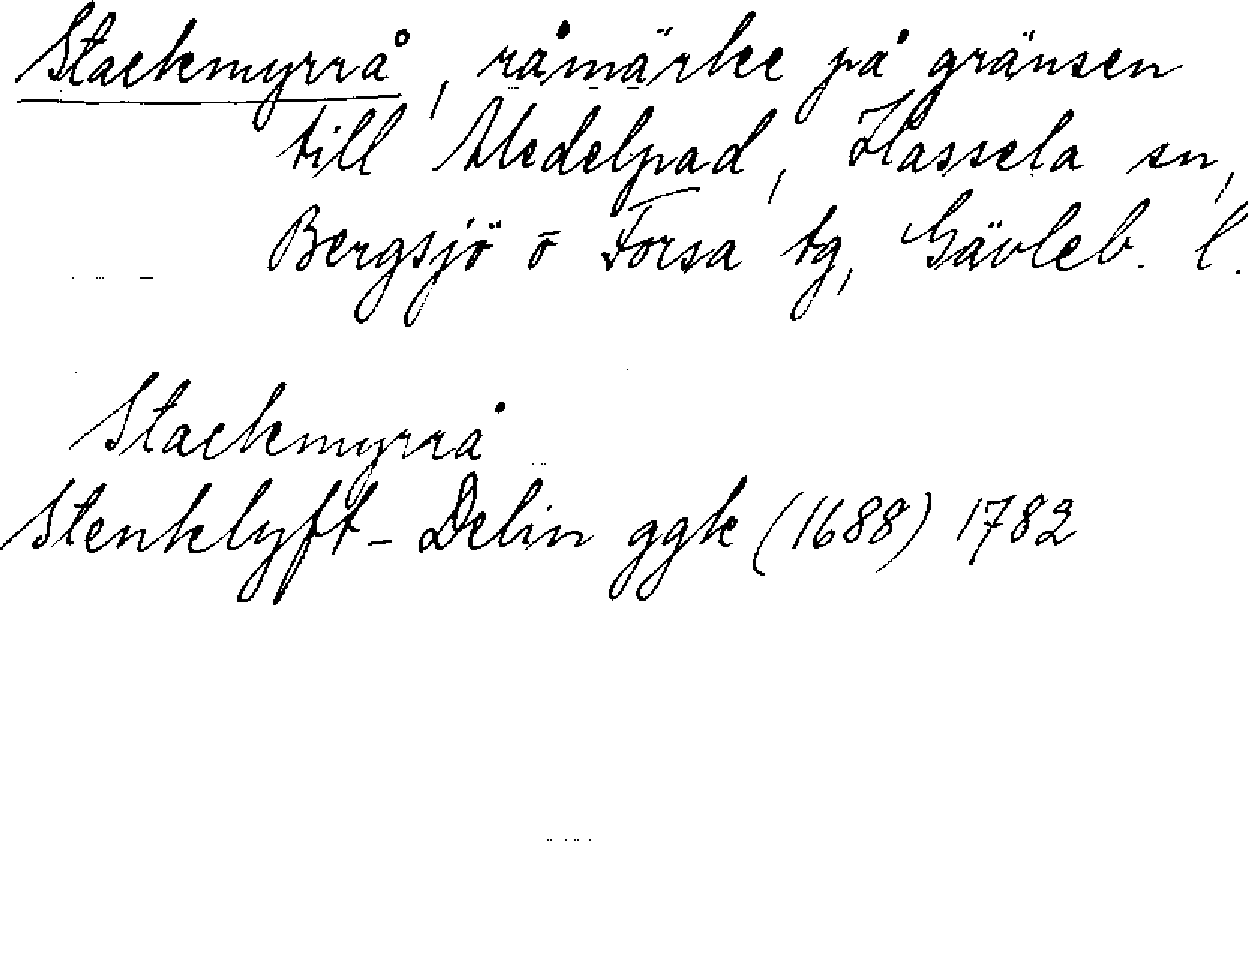 Stackmyrrå, råmärke på gränsen
till Medelpad, Hassela sn,
Bergsjö o Forsa tg, Gävleb. l.
Stackmyrrå
Stenklyft - Delin ggk (1688) 1782